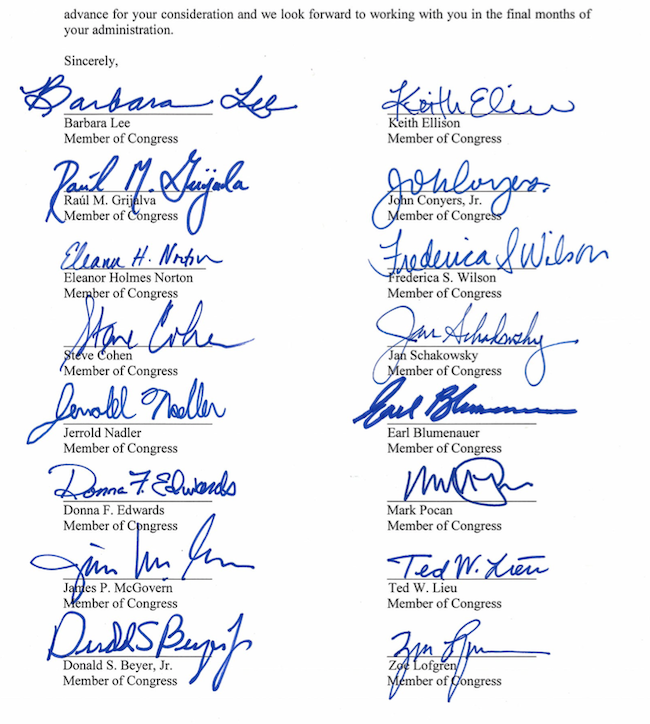 advance for your consideration and we look forward to working with you in the final months of
your administration.
Sincerely,
Barbara Lee
Barbara Lee
Member of Congress
Keith Ellison
Member of Congress
Raúl M. Grijalva
Raúl M. Grijalva
Member of Congress
John Conyers, Jr.
Member of Congress
Eleanor H. Norton
Eleanor Holmes Norton
Member of Congress
Frederica S Wilson
Frederica S. Wilson
Member of Congress
Steve Cohen
Steve Cohen
Member of Congress
Jan Schakowsky
Jan Schakowsky
Member of Congress
Jerrold Nadler
Jerrold Nadler
Member of Congress
Earl Blumenauer
Member of Congress
Donna F. Edwards
Donna F. Edwards
Member of Congress
Mark Pocan
Member of Congress
James P. McGovern
Member of Congress
Ted W. Lieu
Ted W. Lieu
Member of Congress
Donald S. Beyer, Jr.
Member of Congress
Zoe Lofgren
Member of Congress